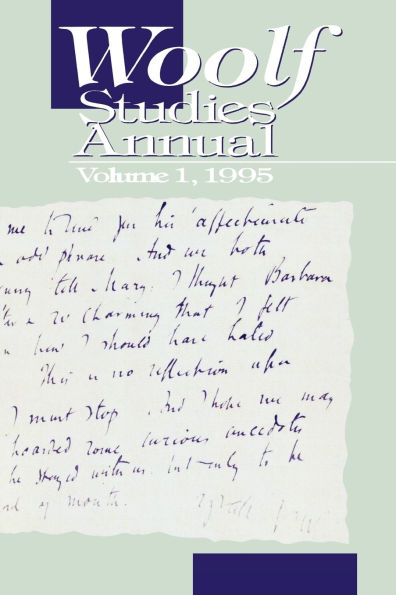 Woolf
Studies
Annual
Volume 1, 1995
me to his affectionate
odd phrase. And we both
tell Mary. I thought Barbara
so charming that I felt
I should have hated
This is no reflection upon
I must stop. And I hope we may
hoarded some curious anecdotes
he stayed with us. but only to be
of mouth.